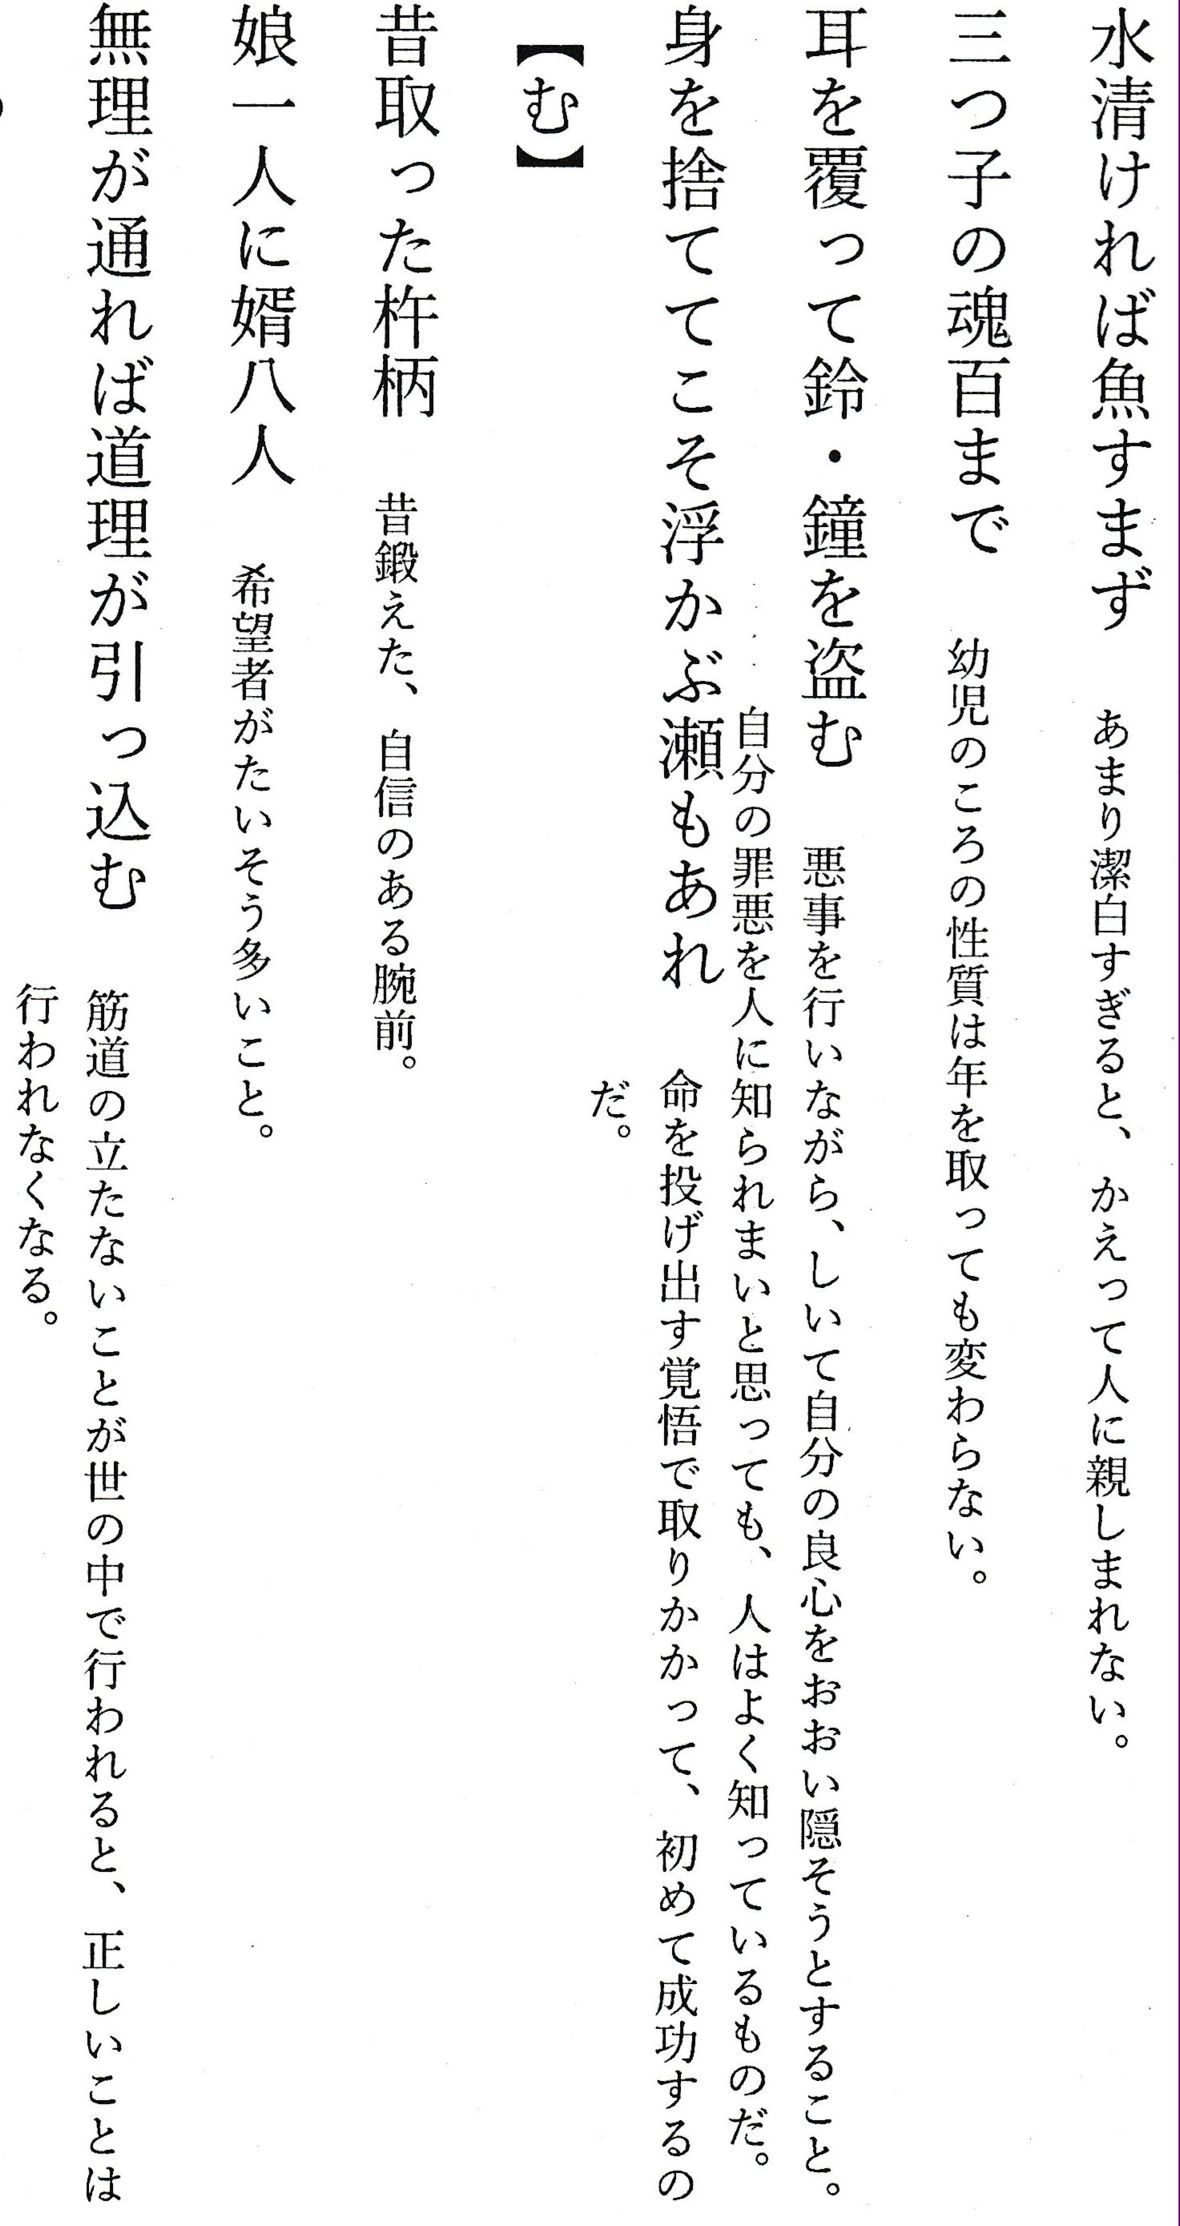 水清ければ魚すまず　あまり潔白すぎると、かえって人に親しまれない。
三つ子の魂百まで　幼児のころの性質は年を取っても変わらない。
耳を覆って鈴・鐘を盗む　悪事を行いながら、しいて自分の良心をおおい隠そうとすること。
自分の罪悪を人に知られまいと思っても、人はよく知っているものだ。
身を捨ててこそ浮かぶ瀬もあれ　命を投げ出す覚悟で取りかかって、初めて成功するの
だ。
【む】
昔取った杵柄　昔鍛えた、自信のある腕前。
娘一人に婿八人　希望者がたいそう多いこと。
無理が通れば道理が引っ込む　筋道の立たないことが世の中で行われると、正しいことは
行われなくなる。